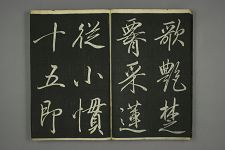 歌艷楚
腎采蓮
從小慣
十五即